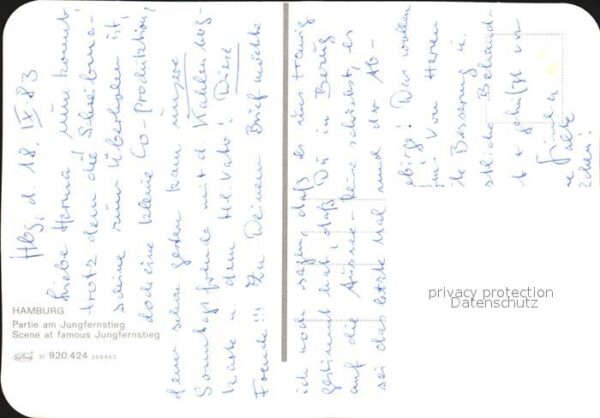 Hbg, d. 18. IX. 83
Liebe Herma nun kommt,
trotz dem die Schreibma-
schine zum Überholen ist,
doch eine kleine Co-Produktion,
denn schon gestern kam unsere
Sonntagsfreude mit d Karten
karte u. dem Hl. Vater! Diese
Freude!!! Zu Deinem Brief möchte
ich noch sagen, daß es uns traurig
gestimmt hat, daß Du in Bezug
auf die Aussee-Reise schreibst, es
sei das letzte Mal und der Ab-
! Das wollen
Von Herzen
Besserung u.
Behand-
HAMBURG
Partie am Jungfernstieg
Scene at famous Jungfernstieg
31 920.424
privacy protection
Datenschutz